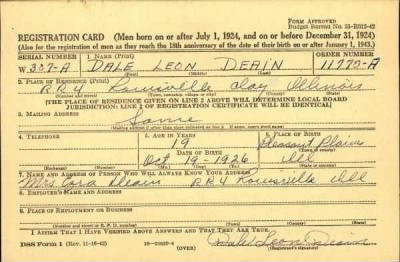 FORM APPROVED
Budget Bureau No. 33-R015-42
REGISTRATION CARD (Men born on or after July 1, 1924, and on or before December 31, 1924)
(Also for the registration of men as they reach the 18th anniversary of the date of their birth on or after January 1, 1943.)
SERIAL NUMBER 1. NAME (Print) ORDER NUMBER
W 307-A DALE LEON DEAIN 11772-A
(First) (Middle) (Last)
2. PLACE OF RESIDENCE (Print)
RR4 Louisville Clay Illinois
(Number and street) (Town, township, village, or city) (County) (State)
[THE PLACE OF RESIDENCE GIVEN ON LINE 2 ABOVE WILL DETERMINE LOCAL BOARD
JURISDICTION; LINE 2 OF REGISTRATION CERTIFICATE WILL BE IDENTICAL]
3. MAILING ADDRESS
Same
(Mailing address if other than place indicated on line 2. If same, insert word same)
4. TELEPHONE 5. AGE IN YEARS 6. PLACE OF BIRTH
19 Pleasant Plains
DATE OF BIRTH (Town or county)
Oct 19-1926 Ill
(Exchange) (Number) (Mo.) (Day) (Yr.) (State or country)
7. NAME AND ADDRESS OF PERSON WHO WILL ALWAYS KNOW YOUR ADDRESS
Mrs. Cora Deain RR4 Louisville Ill
8. EMPLOYER'S NAME AND ADDRESS
9. PLACE OF EMPLOYMENT OR BUSINESS
(Number and street or R. F. D. number) (Town) (County) (State)
I AFFIRM THAT I HAVE VERIFIED ABOVE ANSWERS AND THAT THEY ARE TRUE.
DSS Form 1 (Rev. 11-16-42) (OVER) Dale Leon Deain
(Registrant's signature)